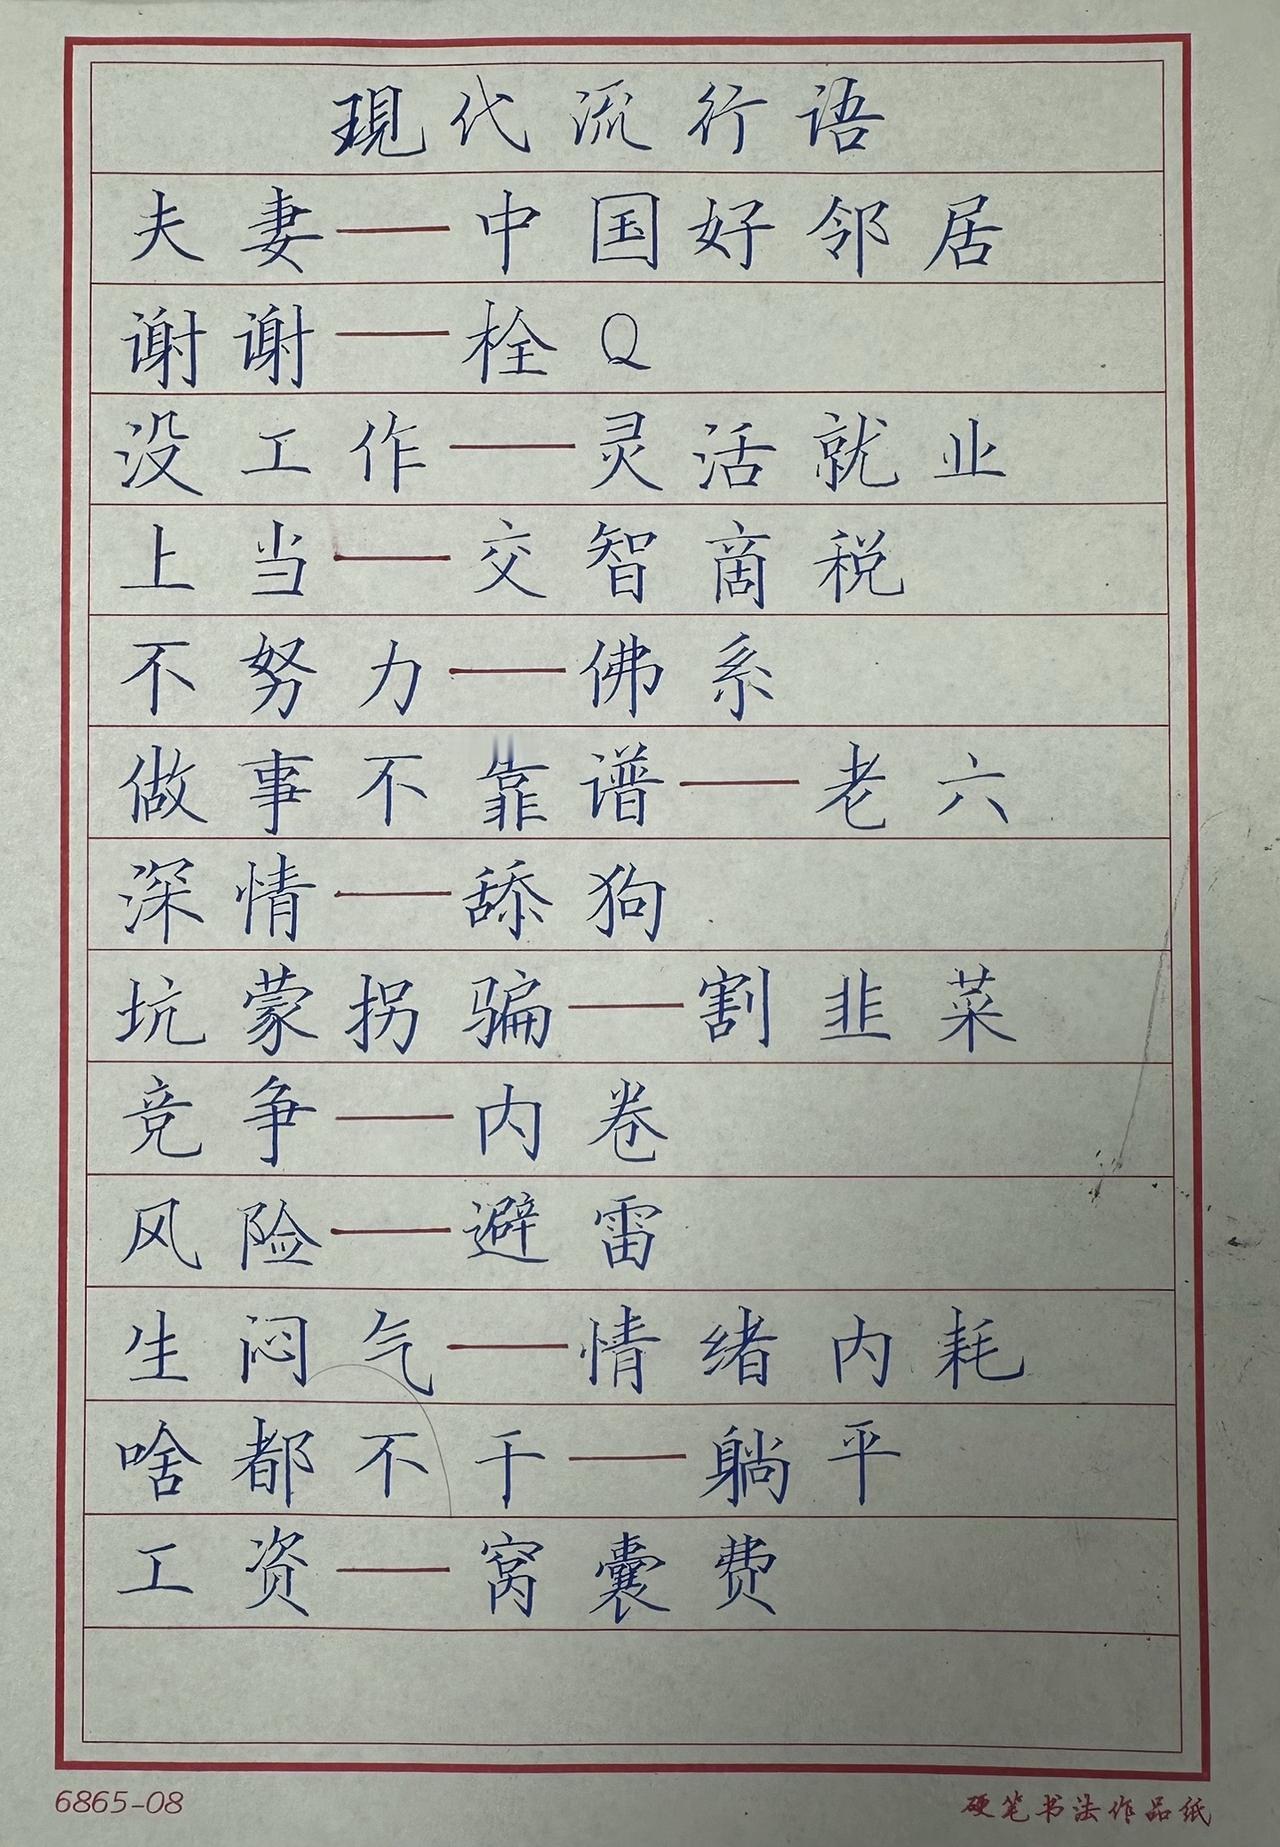 現代流行语
夫妻——中国好邻居
谢谢——栓Q
没工作——灵活就业
上当——交智商税
不努力——佛系
做事不靠谱——老六
深情——舔狗
坑蒙拐骗——割韭菜
竞争——内卷
风险——避雷
生闷气——情绪内耗
啥都不干——躺平
工资——窝囊费
6865-08
硬笔书法作品纸